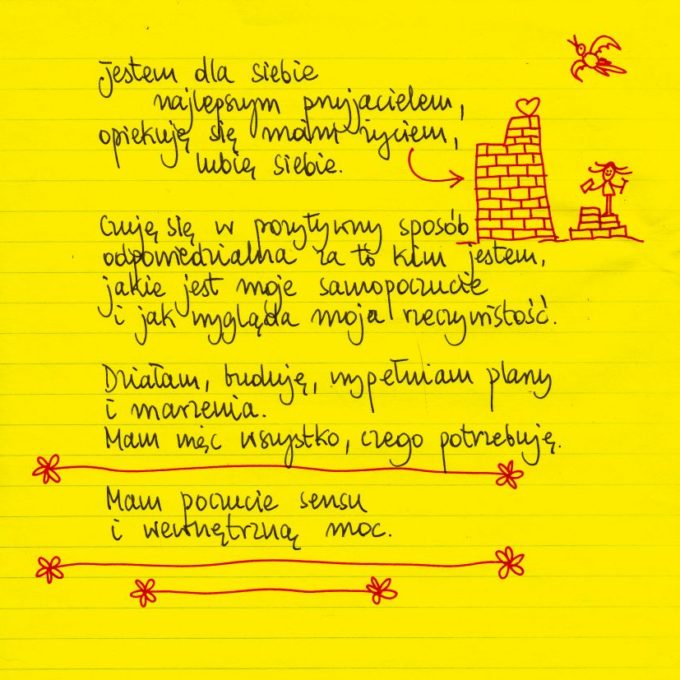 jestem dla siebie
najlepszym przyjacielem,
opiekuję się moim życiem,
lubię siebie.
Czuję się w pozytywny sposób
odpowiedzialna za to kim jestem,
jakie jest moje samopoczucie
i jak wygląda moja rzeczywistość.
Działam, buduję, wypełniam plany
i marzenia.
Mam więc wszystko, czego potrzebuję.
Mam poczucie sensu
i wewnętrzną moc.